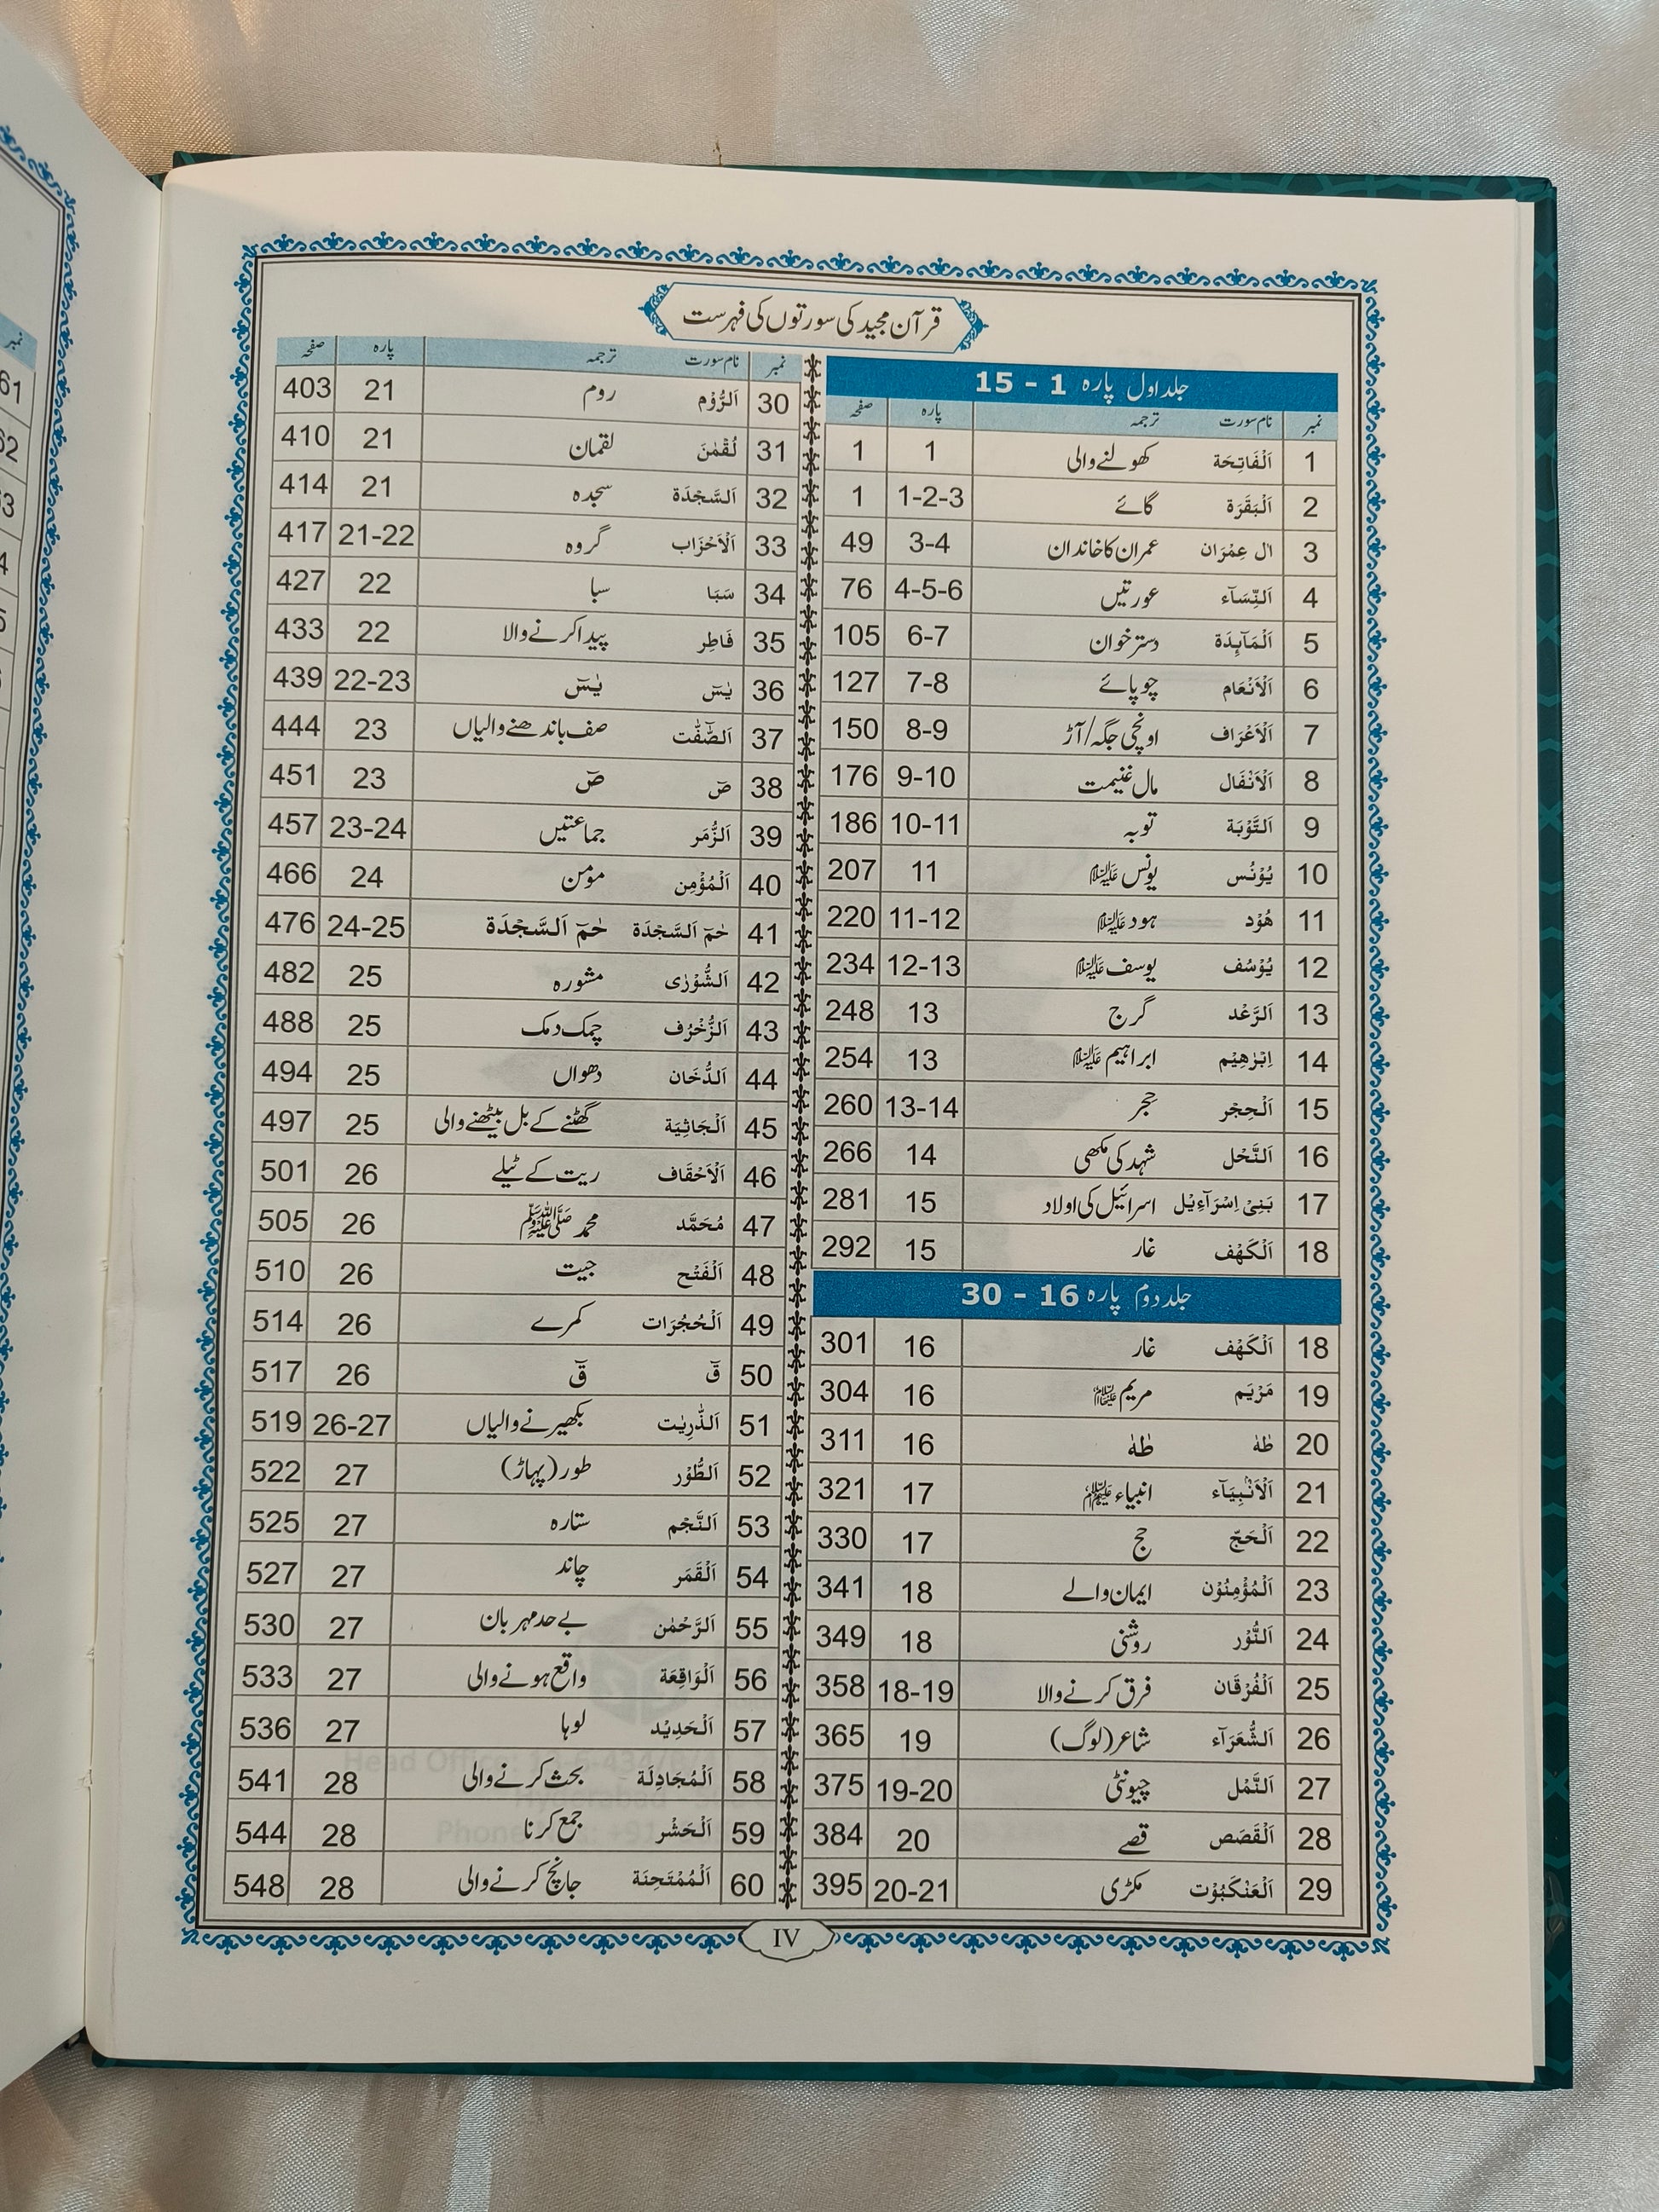 قرآن مجید کی سورتوں کی فہرست
جلد اول پارہ 1 - 15
نمبر نام سورت ترجمہ پارہ صفحہ
1 اَلْفَاتِحَة کھولنے والی 1 1
2 اَلْبَقَرَة گائے 1-2-3 1
3 اٰل عِمْرَان عمران کا خاندان 3-4 49
4 اَلنِّسَآء عورتیں 4-5-6 76
5 اَلْمَآئِدَة دسترخوان 6-7 105
6 اَلْاَنْعَام چوپائے 7-8 127
7 اَلْاَعْرَاف اونچی جگہ/آڑ 8-9 150
8 اَلْاَنْفَال مال غنیمت 9-10 176
9 اَلتَّوْبَة توبہ 10-11 186
10 يُوْنُس یونس علیہ السلام 11 207
11 هُوْد ہود علیہ السلام 11-12 220
12 يُوْسُف یوسف علیہ السلام 12-13 234
13 اَلرَّعْد گرج 13 248
14 اِبْرٰهِيْم ابراہیم علیہ السلام 13 254
15 اَلْحِجْر حجر 13-14 260
16 اَلنَّحْل شہد کی مکھی 14 266
17 بَنِيْ اِسْرَآءِيْل اسرائیل کی اولاد 15 281
18 اَلْكَهْف غار 15 292
جلد دوم پارہ 16 - 30
18 اَلْكَهْف غار 16 301
19 مَرْيَم مریم علیہا السلام 16 304
20 طٰهٰ طٰهٰ 16 311
21 اَلْاَنْۢبِيَآء انبیاء علیہم السلام 17 321
22 اَلْحَجّ حج 17 330
23 اَلْمُؤْمِنُوْن ایمان والے 18 341
24 اَلنُّوْر روشنی 18 349
25 اَلْفُرْقَان فرق کرنے والا 18-19 358
26 اَلشُّعَرَآء شاعر (لوگ) 19 365
27 اَلنَّمْل چیونٹی 19-20 375
28 اَلْقَصَص قصے 20 384
29 اَلْعَنْكَبُوْت مکڑی 20-21 395
نمبر نام سورت ترجمہ پارہ صفحہ
30 اَلرُّوْم روم 21 403
31 لُقْمٰن لقمان 21 410
32 اَلسَّجْدَة سجدہ 21 414
33 اَلْاَحْزَاب گروہ 21-22 417
34 سَبَا سبا 22 427
35 فَاطِر پیدا کرنے والا 22 433
36 يٰسٓ يٰسٓ 22-23 439
37 اَلصّٰٓفّٰت صف باندھنے والیاں 23 444
38 صٓ صٓ 23 451
39 اَلزُّمَر جماعتیں 23-24 457
40 اَلْمُؤْمِن مومن 24 466
41 حٰمٓ اَلسَّجْدَة حٰمٓ اَلسَّجْدَة 24-25 476
42 اَلشُّوْرٰى مشورہ 25 482
43 اَلزُّخْرُف چمک دمک 25 488
44 اَلدُّخَان دھواں 25 494
45 اَلْجَاثِيَة گھٹنے کے بل بیٹھنے والی 25 497
46 اَلْاَحْقَاف ریت کے ٹیلے 26 501
47 مُحَمَّد محمد ﷺ 26 505
48 اَلْفَتْح جیت 26 510
49 اَلْحُجُرَات کمرے 26 514
50 قٓ قٓ 26 517
51 اَلذّٰرِيٰت بکھیرنے والیاں 26-27 519
52 اَلطُّوْر طور (پہاڑ) 27 522
53 اَلنَّجْم ستارہ 27 525
54 اَلْقَمَر چاند 27 527
55 اَلرَّحْمٰن بے حد مہربان 27 530
56 اَلْوَاقِعَة واقع ہونے والی 27 533
57 اَلْحَدِيْد لوہا 27 536
58 اَلْمُجَادِلَة بحث کرنے والی 28 541
59 اَلْحَشْر جمع کرنا 28 544
60 اَلْمُمْتَحِنَة جانچ کرنے والی 28 548
IV
نمبر
61
62